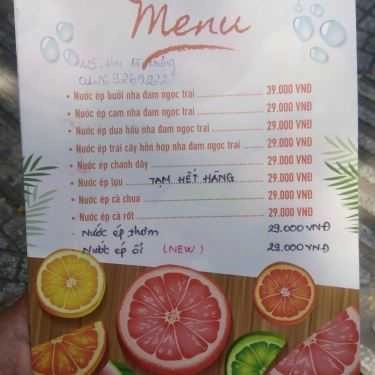 Menu
• Nước ép bưởi nha đam ngọc trai 39.000 VNĐ
• Nước ép cam nha đam ngọc trai 29.000 VNĐ
• Nước ép dưa hấu nha đam ngọc trai 29.000 VNĐ
• Nước ép trái cây hỗn hợp nha đam ngọc trai 29.000 VNĐ
• Nước ép chanh dây 29.000 VNĐ
• Nước ép lựu TẠM HẾT HÀNG 29.000 VNĐ
• Nước ép cà chua 29.000 VNĐ
• Nước ép cà rốt 29.000 VNĐ
- Nước ép thơm 29.000 VNĐ
- Nước ép ổi (NEW) 29.000 VNĐ